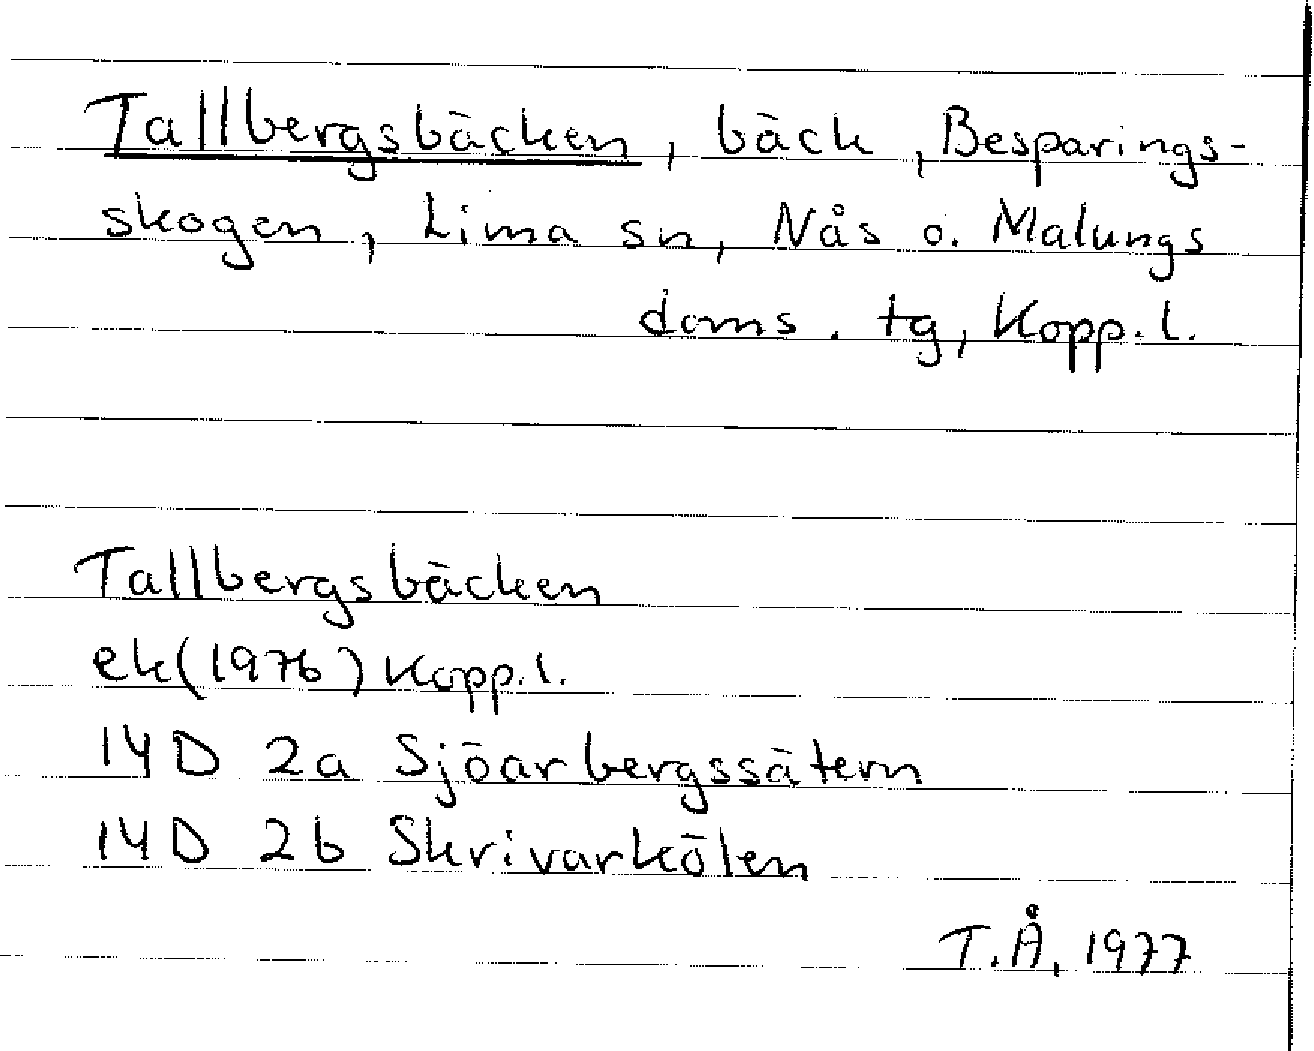 Tallbergsbäcken, bäck, Besparings-
skogen, Lima sn, Nås o. Malungs
doms. tg, Kopp. l.
Tallbergsbäcken
ek(1976) Kopp. l.
14D 2a Sjöarbergssätern
14D 2b Skrivarkölen
T.Å, 1977